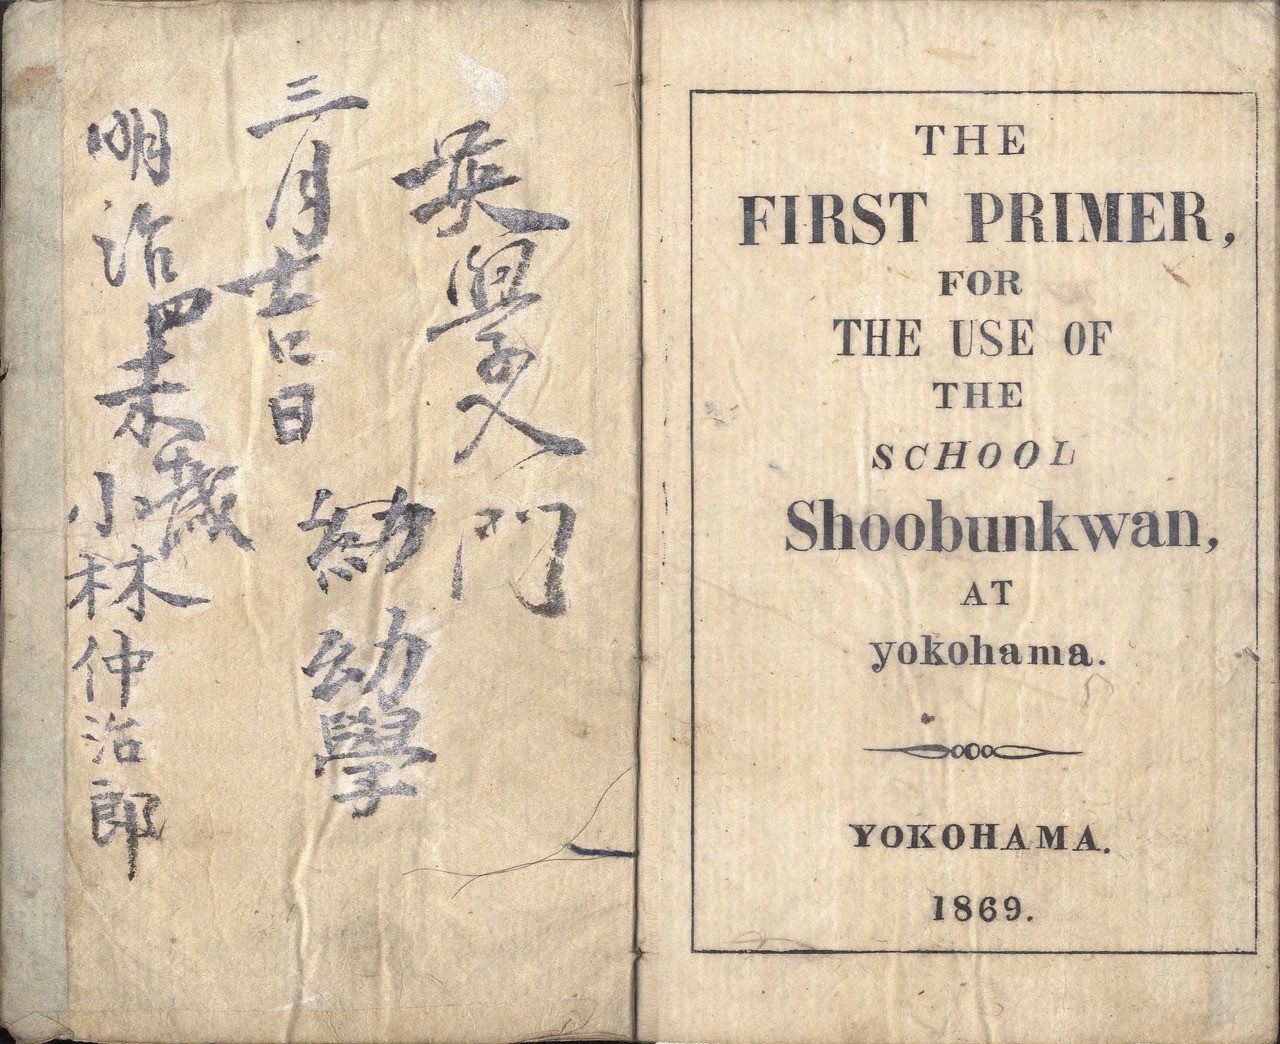 英學入門
幼
幼學
三月吉日
明治四未歳
小林仲治郎
THE
FIRST PRIMER,
FOR
THE USE OF
THE
SCHOOL
Shoobunkwan,
AT
yokohama.
YOKOHAMA.
1869.